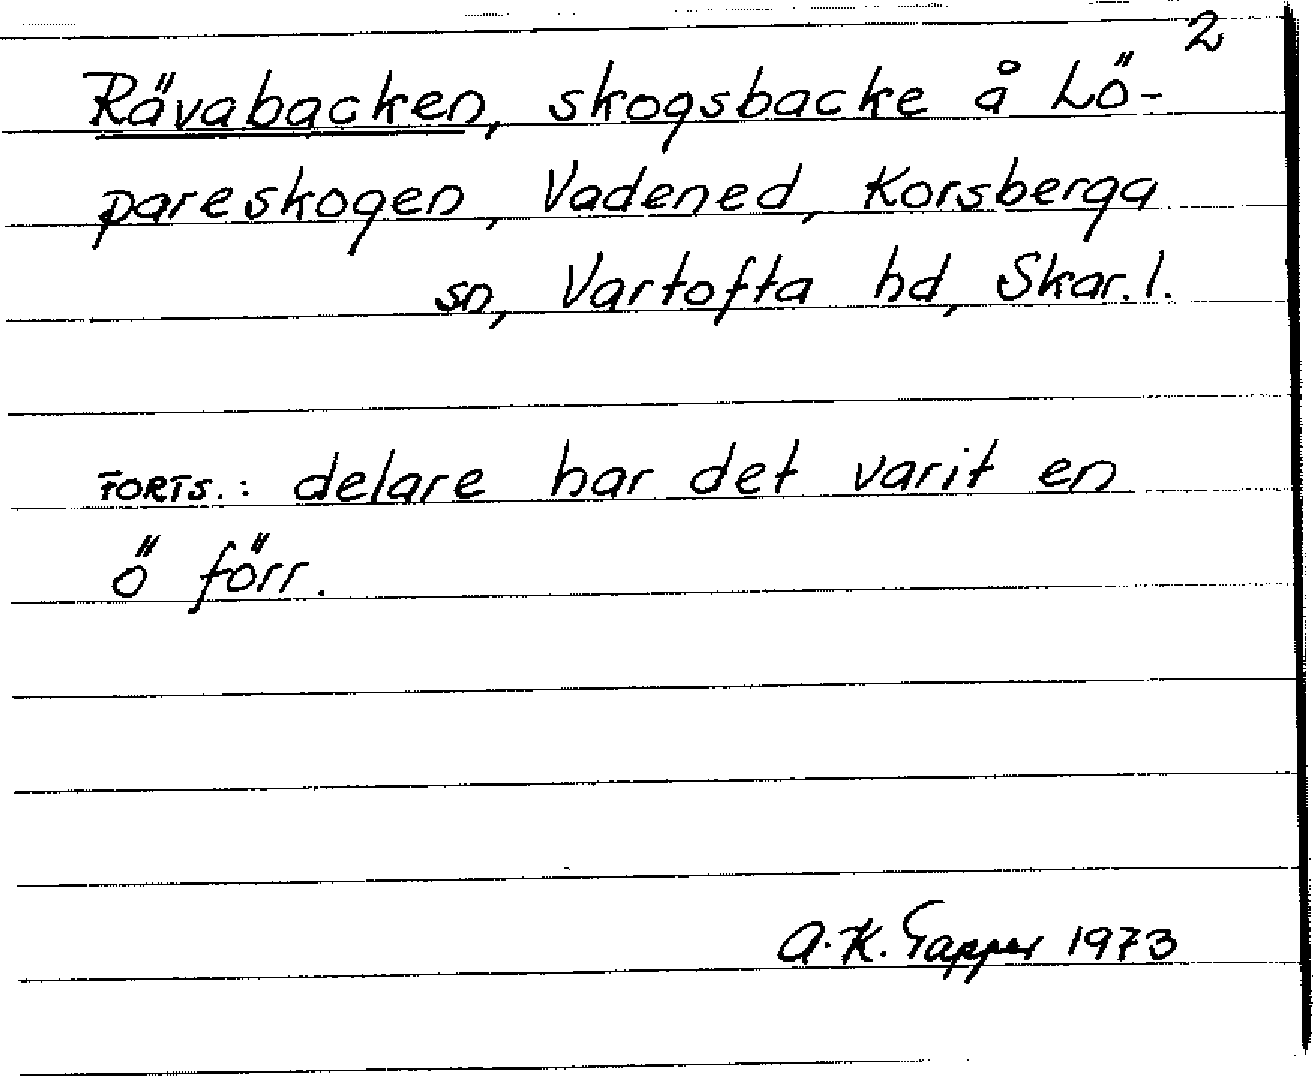 2
Rävabacken, skogsbacke å Lö-
pareskogen, Vadened, Korsberga
sn, Vartofta hd, Skar. l.
FORTS.: delare har det varit en
ö förr.
A.K. Tapper 1973